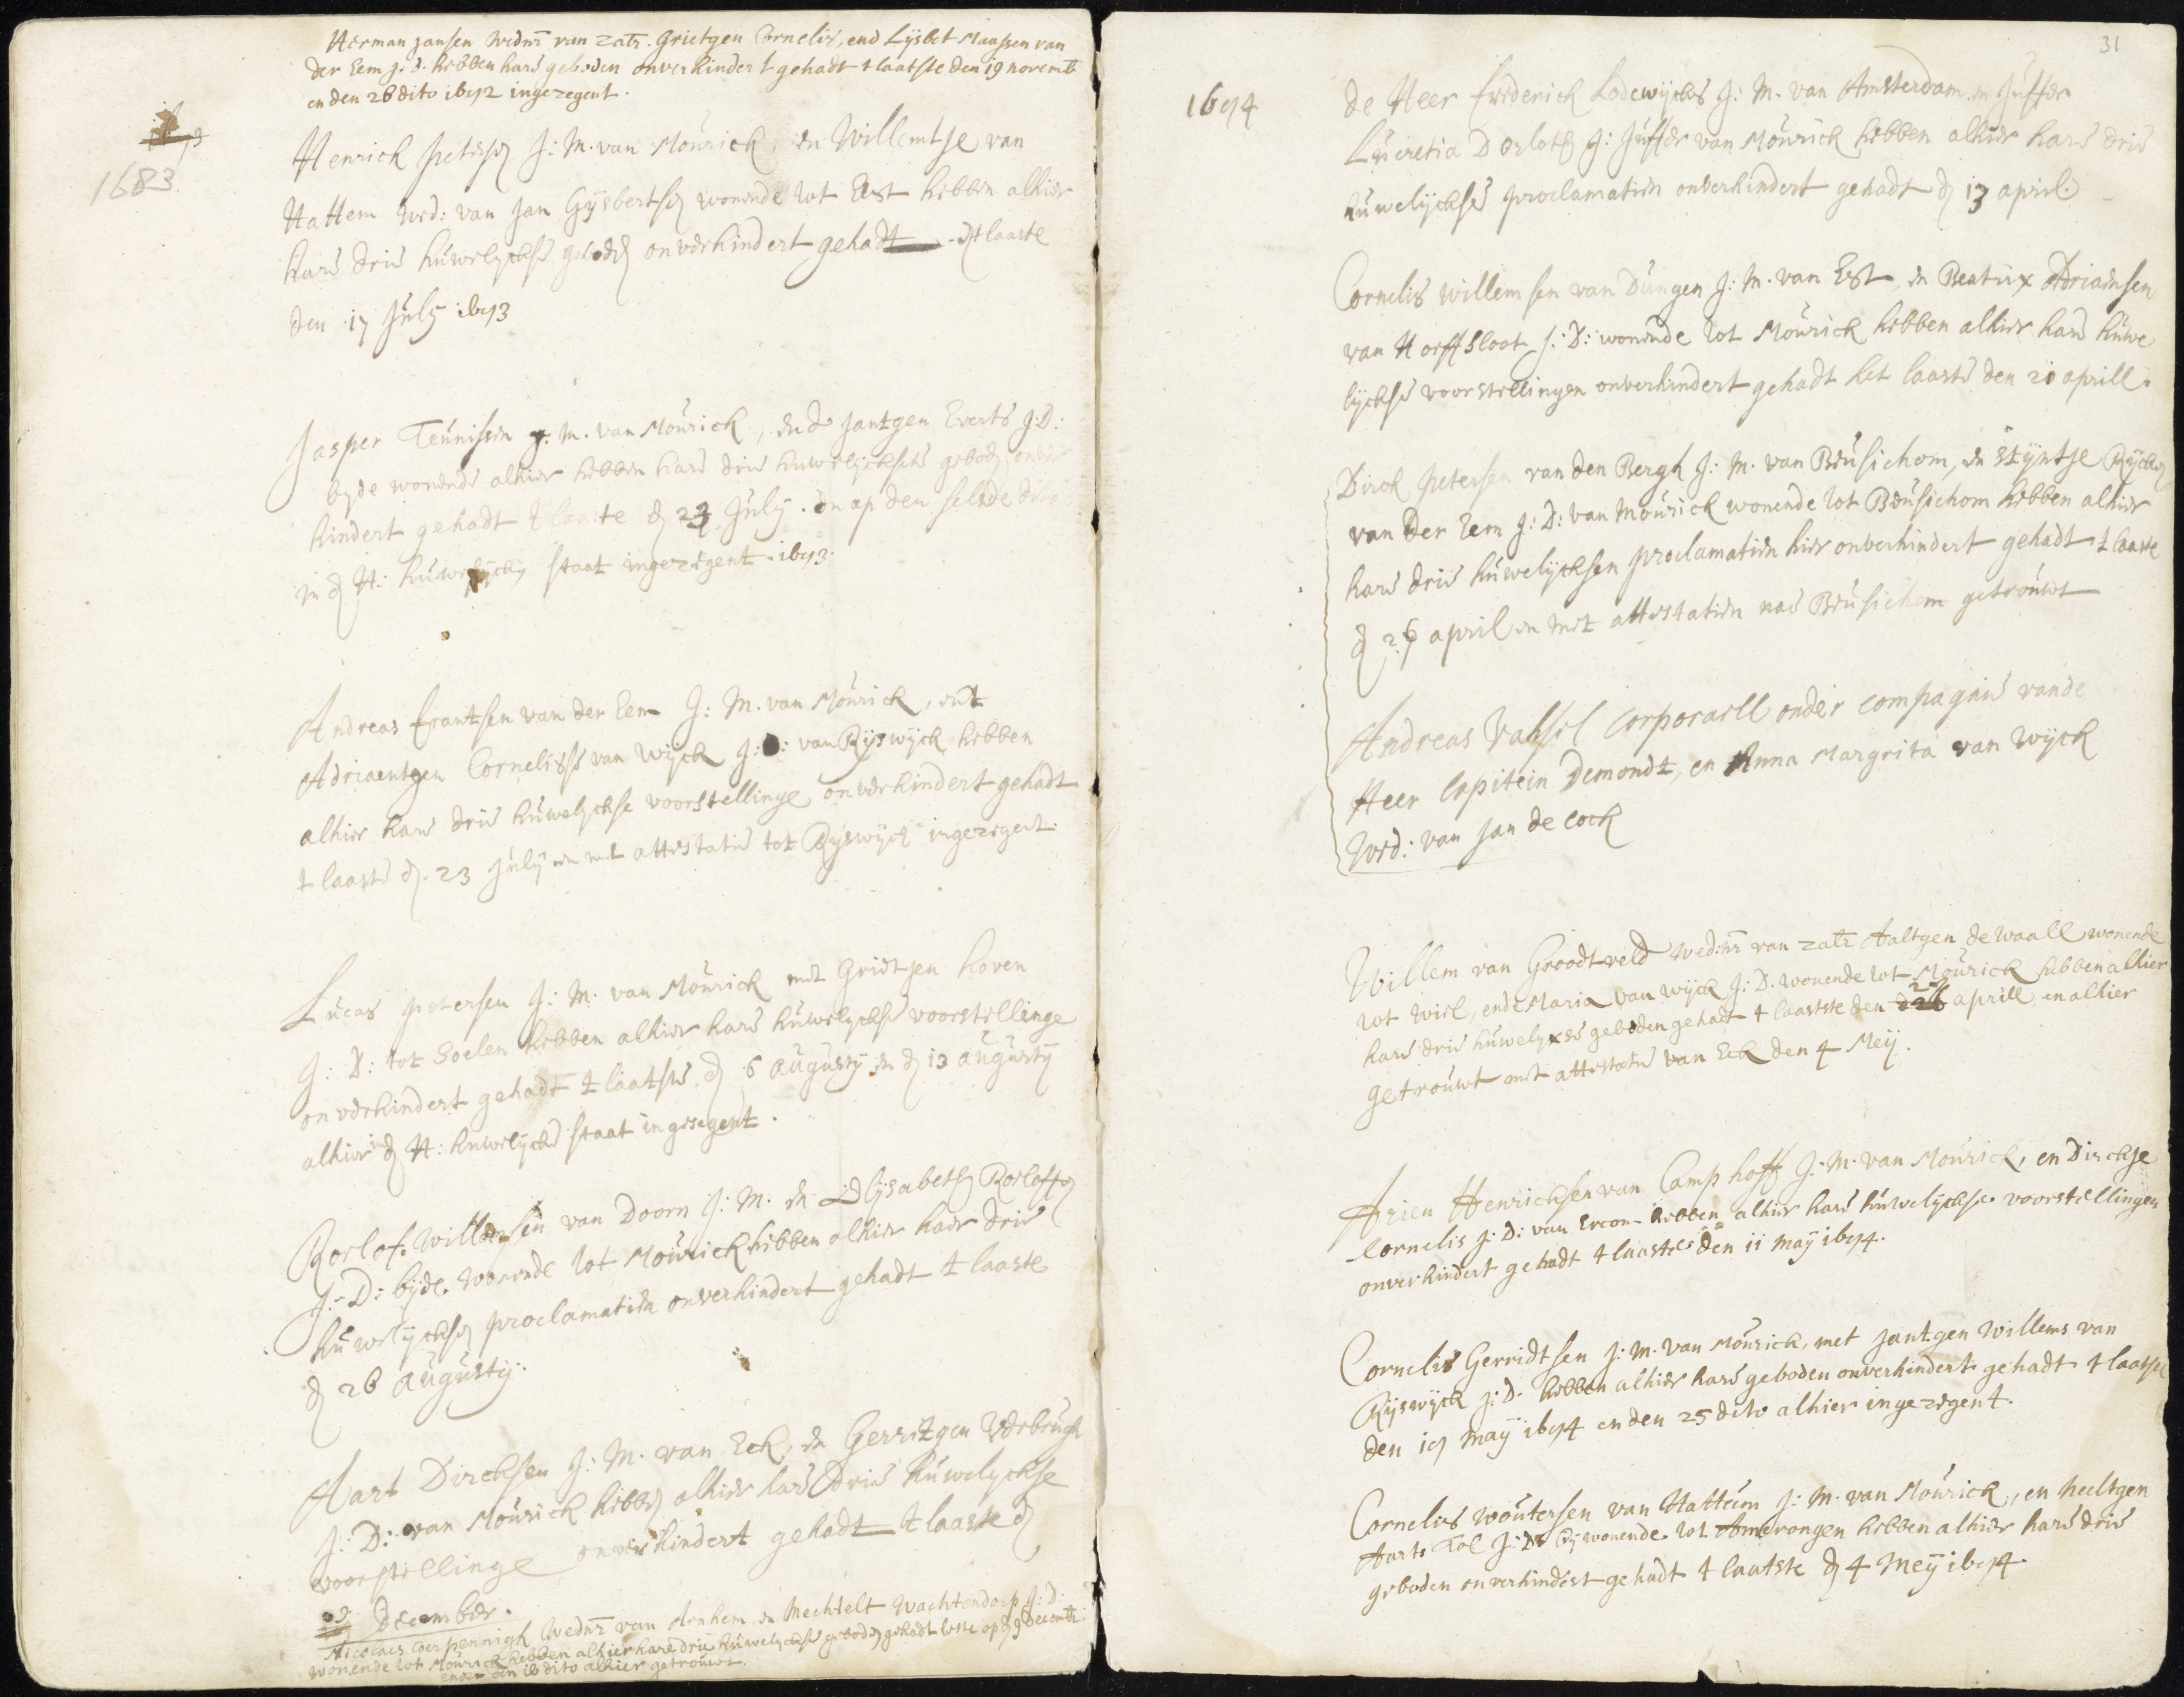 Herman Jansen Wednr van zalr. Grietgen Cornelis, end Lijsbet Maassen van
der Eem J. D. hebben hare geboden onverhindert gehadt t laatste den 19 novemb
en den 28 dito 1692 ingezegent.
1683
Henrick Petersen J: M. van Mourick, en Willemtje van
Hattem wed: van Jan Gijsbertsen wonende tot Est hebben alhier
hare drie huwelyckse geboden onverhindert gehadt t laaste
den 17 July 1693
Jasper Teunissen J. M. van Mourick, ende Jantgen Everts J:D:
byde wonende alhier hebben hare drie huwelyckse geboden onver
hindert gehadt t laaste den 23 July. en op den selve dito
in den H: huwelycken staat ingezegent. 1693.
Andreas Frantsen van der Eem J: M. van Mourick, met
Adriaentgen Cornelisse van Wijck J: D: van Rijswijck hebben
alhier hare drie huwelyckse voorstellinge onverhindert gehadt
t laaste den 23 July en met attestatie tot Rijswijck ingezegent.
Lucas Petersen J: M. van Mourick met Grietjen hoven
J: D: tot Soelen hebben alhier hare huwelyckse voorstellinge
onverhindert gehadt t laatste den 6 augusty en den 13 augusty
alhier in den H: huwelycke staat ingesegent.
Roelof Willemsen van Doorn J: M. en Elysabeth Roelofsen
J: D: byde wonende tot Mourick hebben alhier haer drie
huwelycksen proclamatien onverhindert gehadt t laaste
den 26 augusty.
Aart Dircksen J: M. van Eck, en Gerritgen Verbrugh
J: D: van Mourick hebben alhier hare drie huwelyckse
voorstellinge onverhindert gehadt t laaste den
December.
Nicolaes Wednr van Arnhem en Mechtelt Wachtendorp J: D:
wonende tot Mourick hebben alhier hare drie huwelyckse geboden gehadt leste op den 9 Decemb:
ende den 16 dito alhier getrouwt.
31
1694
de Heer Frederick Lodewijcks J: M. van Amsterdam en Juffer
Lucretia Dorloth J: Juffer van Mourick hebben alhier hare drie
huwelijckse proclamatien onverhindert gehadt den 13 april.
Cornelis Willemsen van Dungen J: M. van Est, en Beatrix Adriaensen
van Hoeffsloot J: D: wonende tot Mourick hebben alhier hare huwe
lijckse voorstellingen onverhindert gehadt het laaste den 20 aprill.
Dirck Petersen van den Bergh J: M. van Beusichom, en Stijntje Rijcken
van der Eem J: D: van Mourick wonende tot Beusichom hebben alhier
hare drie huwelijcksen proclamatien hier onverhindert gehadt t laaste
den 26 april en met attestatien nae Beusichom getrouwt
Andreas Vahsel Corporaell onder compagnie vande
Heer Capitein Demondt, en Anna Margrita van Wijck
Wed: van Jan de Cock
Willem van Groodtveld Wednr van zalr Aaltgen de Waall wonende
tot Wiel, ende Maria van Wijck J: D. wonende tot Mourick hebben alhier
hare drie huwelyxse geboden gehadt t laatste den 27 aprill en alhier
getrouwt met attestatie van Eck den 4 Meij.
Arien Henricksen van Camphoff J: M. van Mourick, en Dirckje
Cornelis J: D: van Ercom hebben alhier hare huwelyckse voorstellingen
onverhindert gehadt t laaste den 11 Maij 1694.
Cornelis Gerridtsen J: M. van Mourick, met Jantgen Willems van
Rijswijck J: D. hebben alhier hare geboden onverhindert gehadt t laatste
den 19 Maij 1694 en den 25 dito alhier ingezegent.
Cornelis Woutersen van Hattem J: M. van Mourick, en heeltgen
Aarts Tol J: D: bij wonende tot Amerongen hebben alhier hare drie
geboden onverhindert gehadt t laatste den 4 Meij 1694.